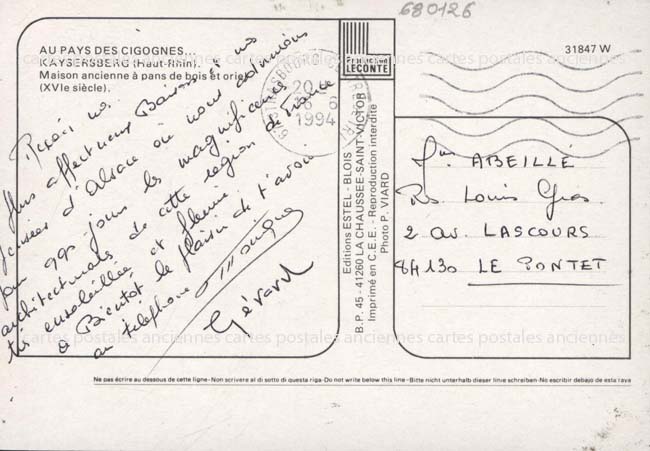 680126
AU PAYS DES CIGOGNES...
KAYSERSBERG (Haut-Rhin).
Maison ancienne à pans de bois et oriel
(XVIe siècle).
31847 W
LECONTE
STRASBOURG
20
6
1994
Reçois nos
plus affectueux Baisers et nos
pensées d'Alsace où nous admirons
pour qqs jours les magnificences
architecturales de cette région de France
très ensoleillée et fleurie
à Bientôt le plaisir de t'avoir
au téléphone
Monique
Gérard
Editions ESTEL - BLOIS
B.P. 45 - 41260 LA CHAUSSEE-SAINT-VICTOR
Imprimé en C.E.E. - Reproduction interdite
Photo P. VIARD
ABEILLÉ
Rés Louis Gros
2 av. LASCOURS
84130 LE PONTET
cartes postales anciennes cartes postales anciennes cartes postales anciennes
cartes postales anciennes cartes postales anciennes cartes postales anciennes
Ne pas écrire au dessous de cette ligne-Non scrivere al di sotto di questa riga-Do not write below this line-Bitte nicht unterhalb dieser linie schreiben-No escribir debajo de esta raya